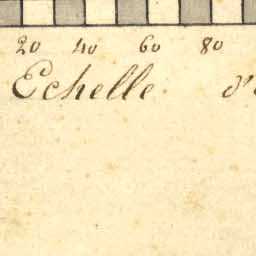 20 40 60 80
Echelle d'